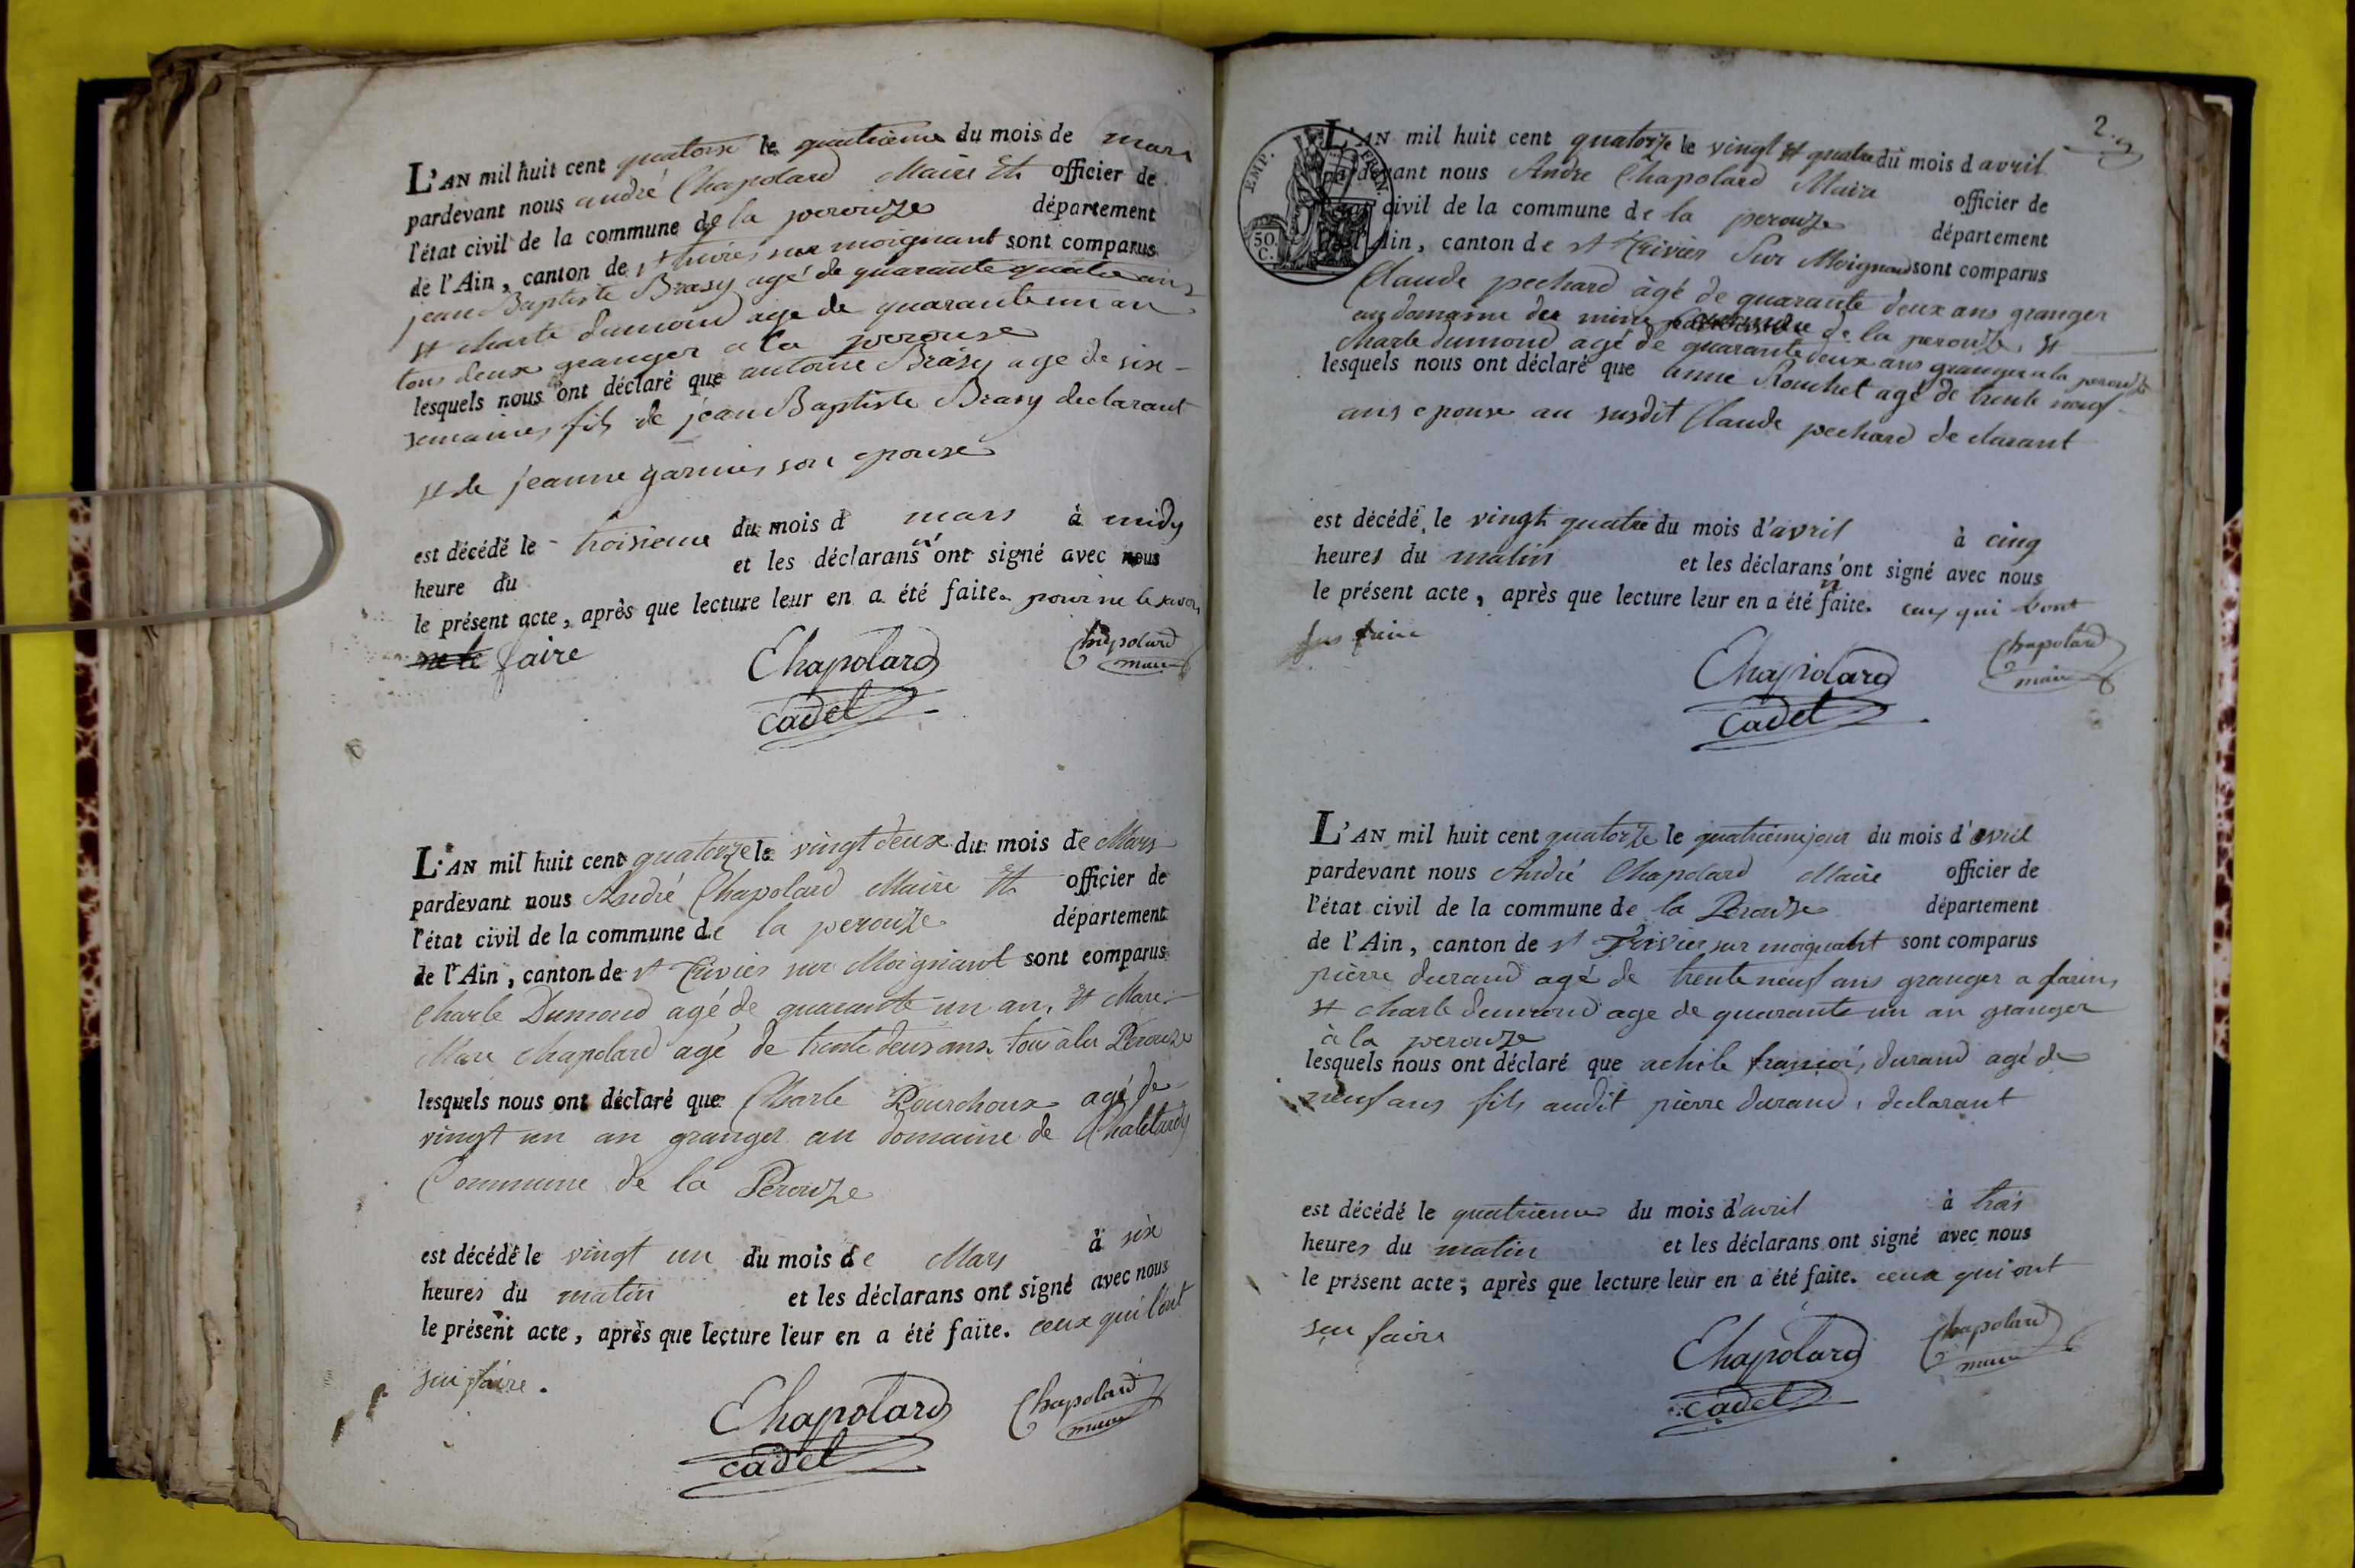 L'AN mil huit cent quatorze le quatrieme du mois de mars
pardevant nous andré Chapolard Maire Et officier de
l'état civil de la commune de la perouze département
de l'Ain, canton de st trivies sur moignant sont comparus
jean Baptiste Brasy agé de quarante quatre ans
et charle dumond age de quarante un an
tous deux granger a la perouse
lesquels nous ont déclaré que antoine Brasy age de six
semaines fils de jean Baptiste Brasy declarant
et de jeanne garnier son epouse
est décédé le troisieme du mois d mars à midy
heure du et les déclarans n' ont signé avec nous
le présent acte, après que lecture leur en a été faite. pour ne le savoir
faire
Chapolard
cadet
Chapolard
maire
L'AN mil huit cent quatorze le vingt deux du mois de Mars
pardevant nous André Chapolard Maire Et officier de
l'état civil de la commune de la perouze département
de l'Ain, canton de st Trivier sur Moignant sont comparus
Charle Dumond agé de quarante un an, et Marc
Marc Chapolard agé de trente deux ans tous à la Perouze
lesquels nous ont déclaré que Charle Pourchoux agé de
vingt un an granger au domaine de Chaletard
Commune de la Perouze
est décédé le vingt un du mois de Mars à six
heures du matin et les déclarans ont signé avec nous
le présent acte, après que lecture leur en a été faite. ceux qui l'ont
sçu faire.
Chapolard
cadet
Chapolard
maire
2.
EMP. FRAN.
50.
C.
L'AN mil huit cent quatorze le vingt et quatre du mois d avril
pardevant nous Andre Chapolard Maire officier de
l'état civil de la commune de la perouze département
de l'Ain, canton de st Trivier Sur Moignand sont comparus
Claude pechard âgé de quarante deux ans granger
au domaine de la perouze, et
charle dumond agé de quarante deux ans granger a la perouze
lesquels nous ont déclaré que anne Rouchet agé de trente neuf
ans epouse au susdit Claude pechard declarant
est décédé le vingt quatre du mois d'avril à cinq
heures du matin et les déclarans n'ont signé avec nous
le présent acte, après que lecture leur en a été faite. ceux qui l'ont
sus faire
Chapolard
Cadet
Chapolard
maire
L'AN mil huit cent quatorze le quatrieme jour du mois d'avril
pardevant nous André Chapolard Maire officier de
l'état civil de la commune de la Perouze département
de l'Ain, canton de st Trivier sur moignant sont comparus
pierre durand agé de trente neuf ans granger a farin,
et charle dumond age de quarante un an granger
à la perouze
lesquels nous ont déclaré que achile françoi, durand agé de
neuf ans fils audit pierre durand, declarant
est décédé le quatrieme du mois d'avril à trois
heures du matin et les déclarans ont signé avec nous
le présent acte, après que lecture leur en a été faite. ceux qui ont
sçu faire
Chapolard
cadet
Chapolard
maire